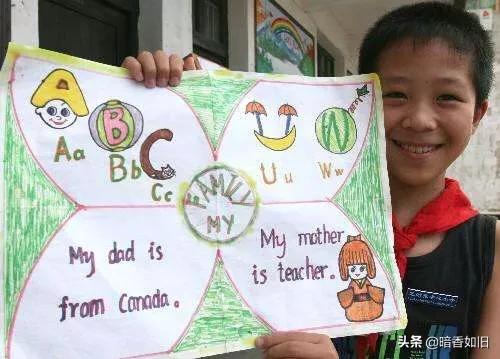 A
B
C
Aa
Bb
Cc
U
W
Uu
Ww
FAMILY
MY
My dad is
from Canada.
My mother
is teacher.
头条 @暗香如旧